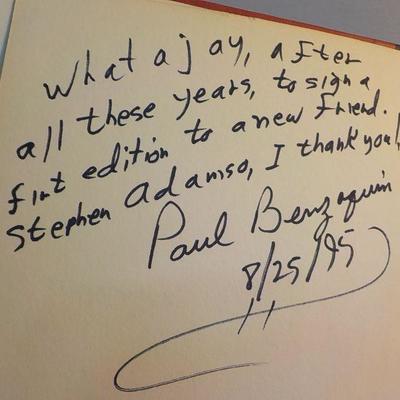 What a joy, after
all these years, to sign a
first edition to a new friend.
Stephen Adamso, I thank you!
Paul Benzaquin
8/25/95